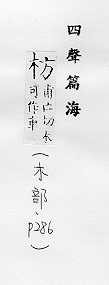 四聲篇海
枋
甫亡切木
可作車
(木部、p286)